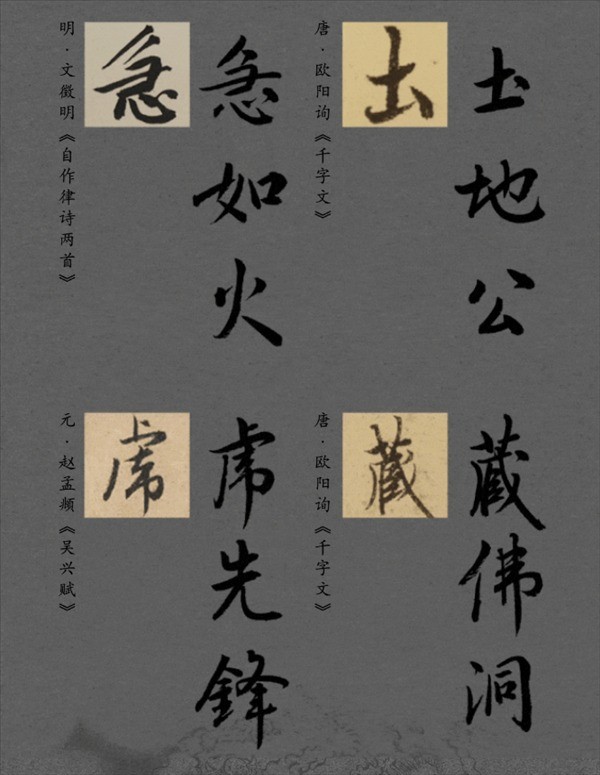 土地公
土
唐·欧阳询《千字文》
急如火
急
明·文徵明《自作律诗两首》
藏佛洞
藏
唐·欧阳询《千字文》
虎先锋
虎
元·赵孟頫《吴兴赋》